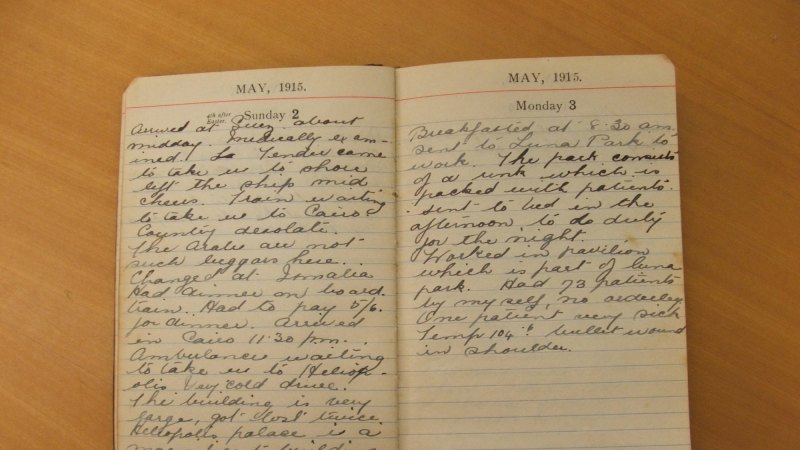 MAY, 1915.
4th after Easter. Sunday 2
Arrived at Suez about
midday. Medically exam-
ined. La Tender came
to take us to shore
left the ship mid
cheers. Train waiting
to take us to Cairo
Country desolate.
The Arabs are not
such beggars here.
Changed at Ismalia
Had dinner on board
train. Had to pay 5/6.
for dinner. Arrived
in Cairo 11.30 p.m.
Ambulances waiting
to take us to Heliop-
olis very cold drive.
The building is very
large, got lost twice.
Heliopolis palace is a
MAY, 1915.
Monday 3
Breakfasted at 8.30 am,
sent to Luna Park to
work. The park consists
of a rink which is
packed with patients.
sent to bed in the
afternoon, to do duty
for the night.
Worked in pavilion
which is part of luna
park. Had 73 patients
by myself, no orderley
One patient very sick
Temp 104.6 bullet wound
in shoulder.